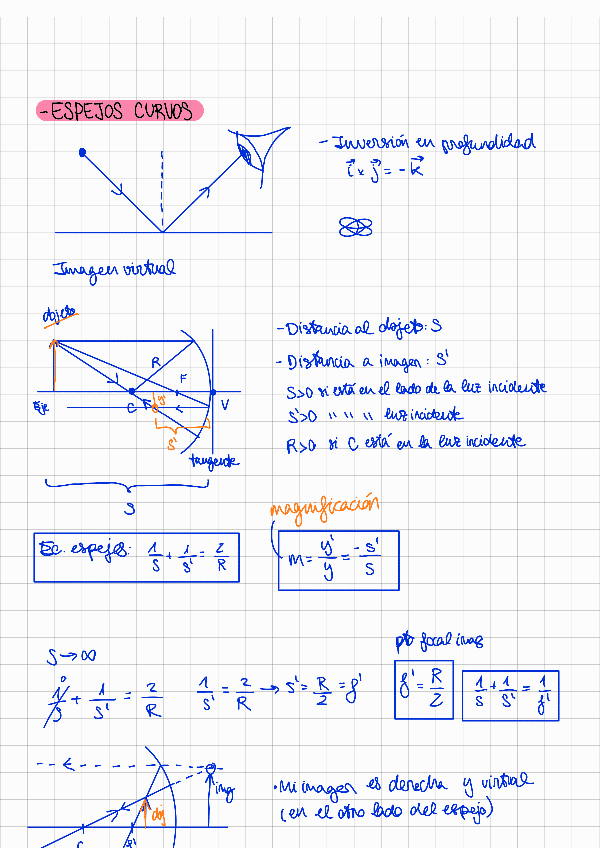 - ESPEJOS CURVOS
- Inversión en profundidad
i × j = - k
Imagen virtual
objeto
R
F
Eje
C
y'
V
s'
tangente
S
- Distancia al objeto: S
- Distancia a imagen: S'
S>0 si está en el lado de la luz incidente
S'>0 " " " luz incidente
R>0 si C está en la luz incidente
magnificación
Ec. espejos: 1/S + 1/S' = 2/R
m = y'/y = -s'/s
S → ∞
pto focal imag
1/S 0 + 1/S' = 2/R
1/S' = 2/R → S' = R/2 = f'
f' = R/2
1/S + 1/S' = 1/f'
img
obj
· Mi imagen es derecha y virtual
(en el otro lado del espejo)